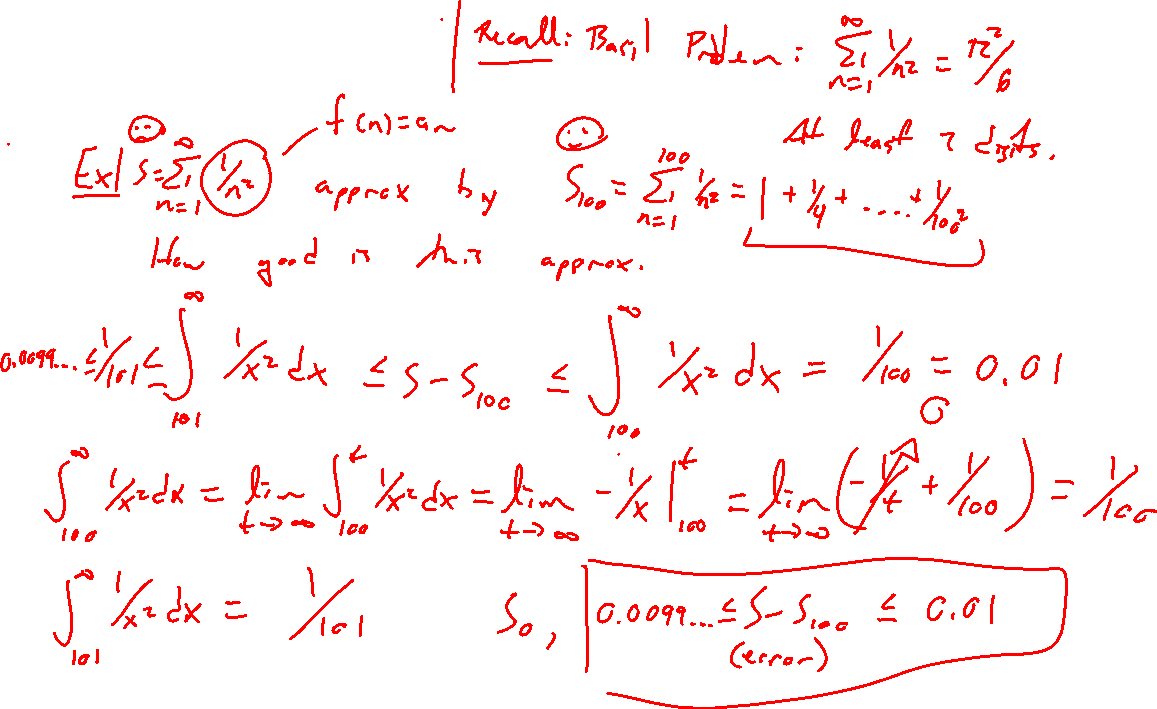 Recall: Basel Problem: ∑_{n=1}^{∞} 1/n² = π²/6
f(n) = aₙ
At least 2 digits.
Ex| S = ∑_{n=1}^{∞} 1/n² approx by S₁₀₀ = ∑_{n=1}^{100} 1/n² = 1 + 1/4 + ..... + 1/100²
How good is this approx.
0.0099... ≤ 1/101 ≤ ∫_{101}^{∞} 1/x² dx ≤ S - S₁₀₀ ≤ ∫_{100}^{∞} 1/x² dx = 1/100 = 0.01
∫_{100}^{∞} 1/x² dx = lim_{t→∞} ∫_{100}^{t} 1/x² dx = lim_{t→∞} -1/x |_{100}^{t} = lim_{t→∞} (-1/t + 1/100) = 1/100
0
∫_{101}^{∞} 1/x² dx = 1/101 So, 0.0099... ≤ S - S₁₀₀ ≤ 0.01
(error)